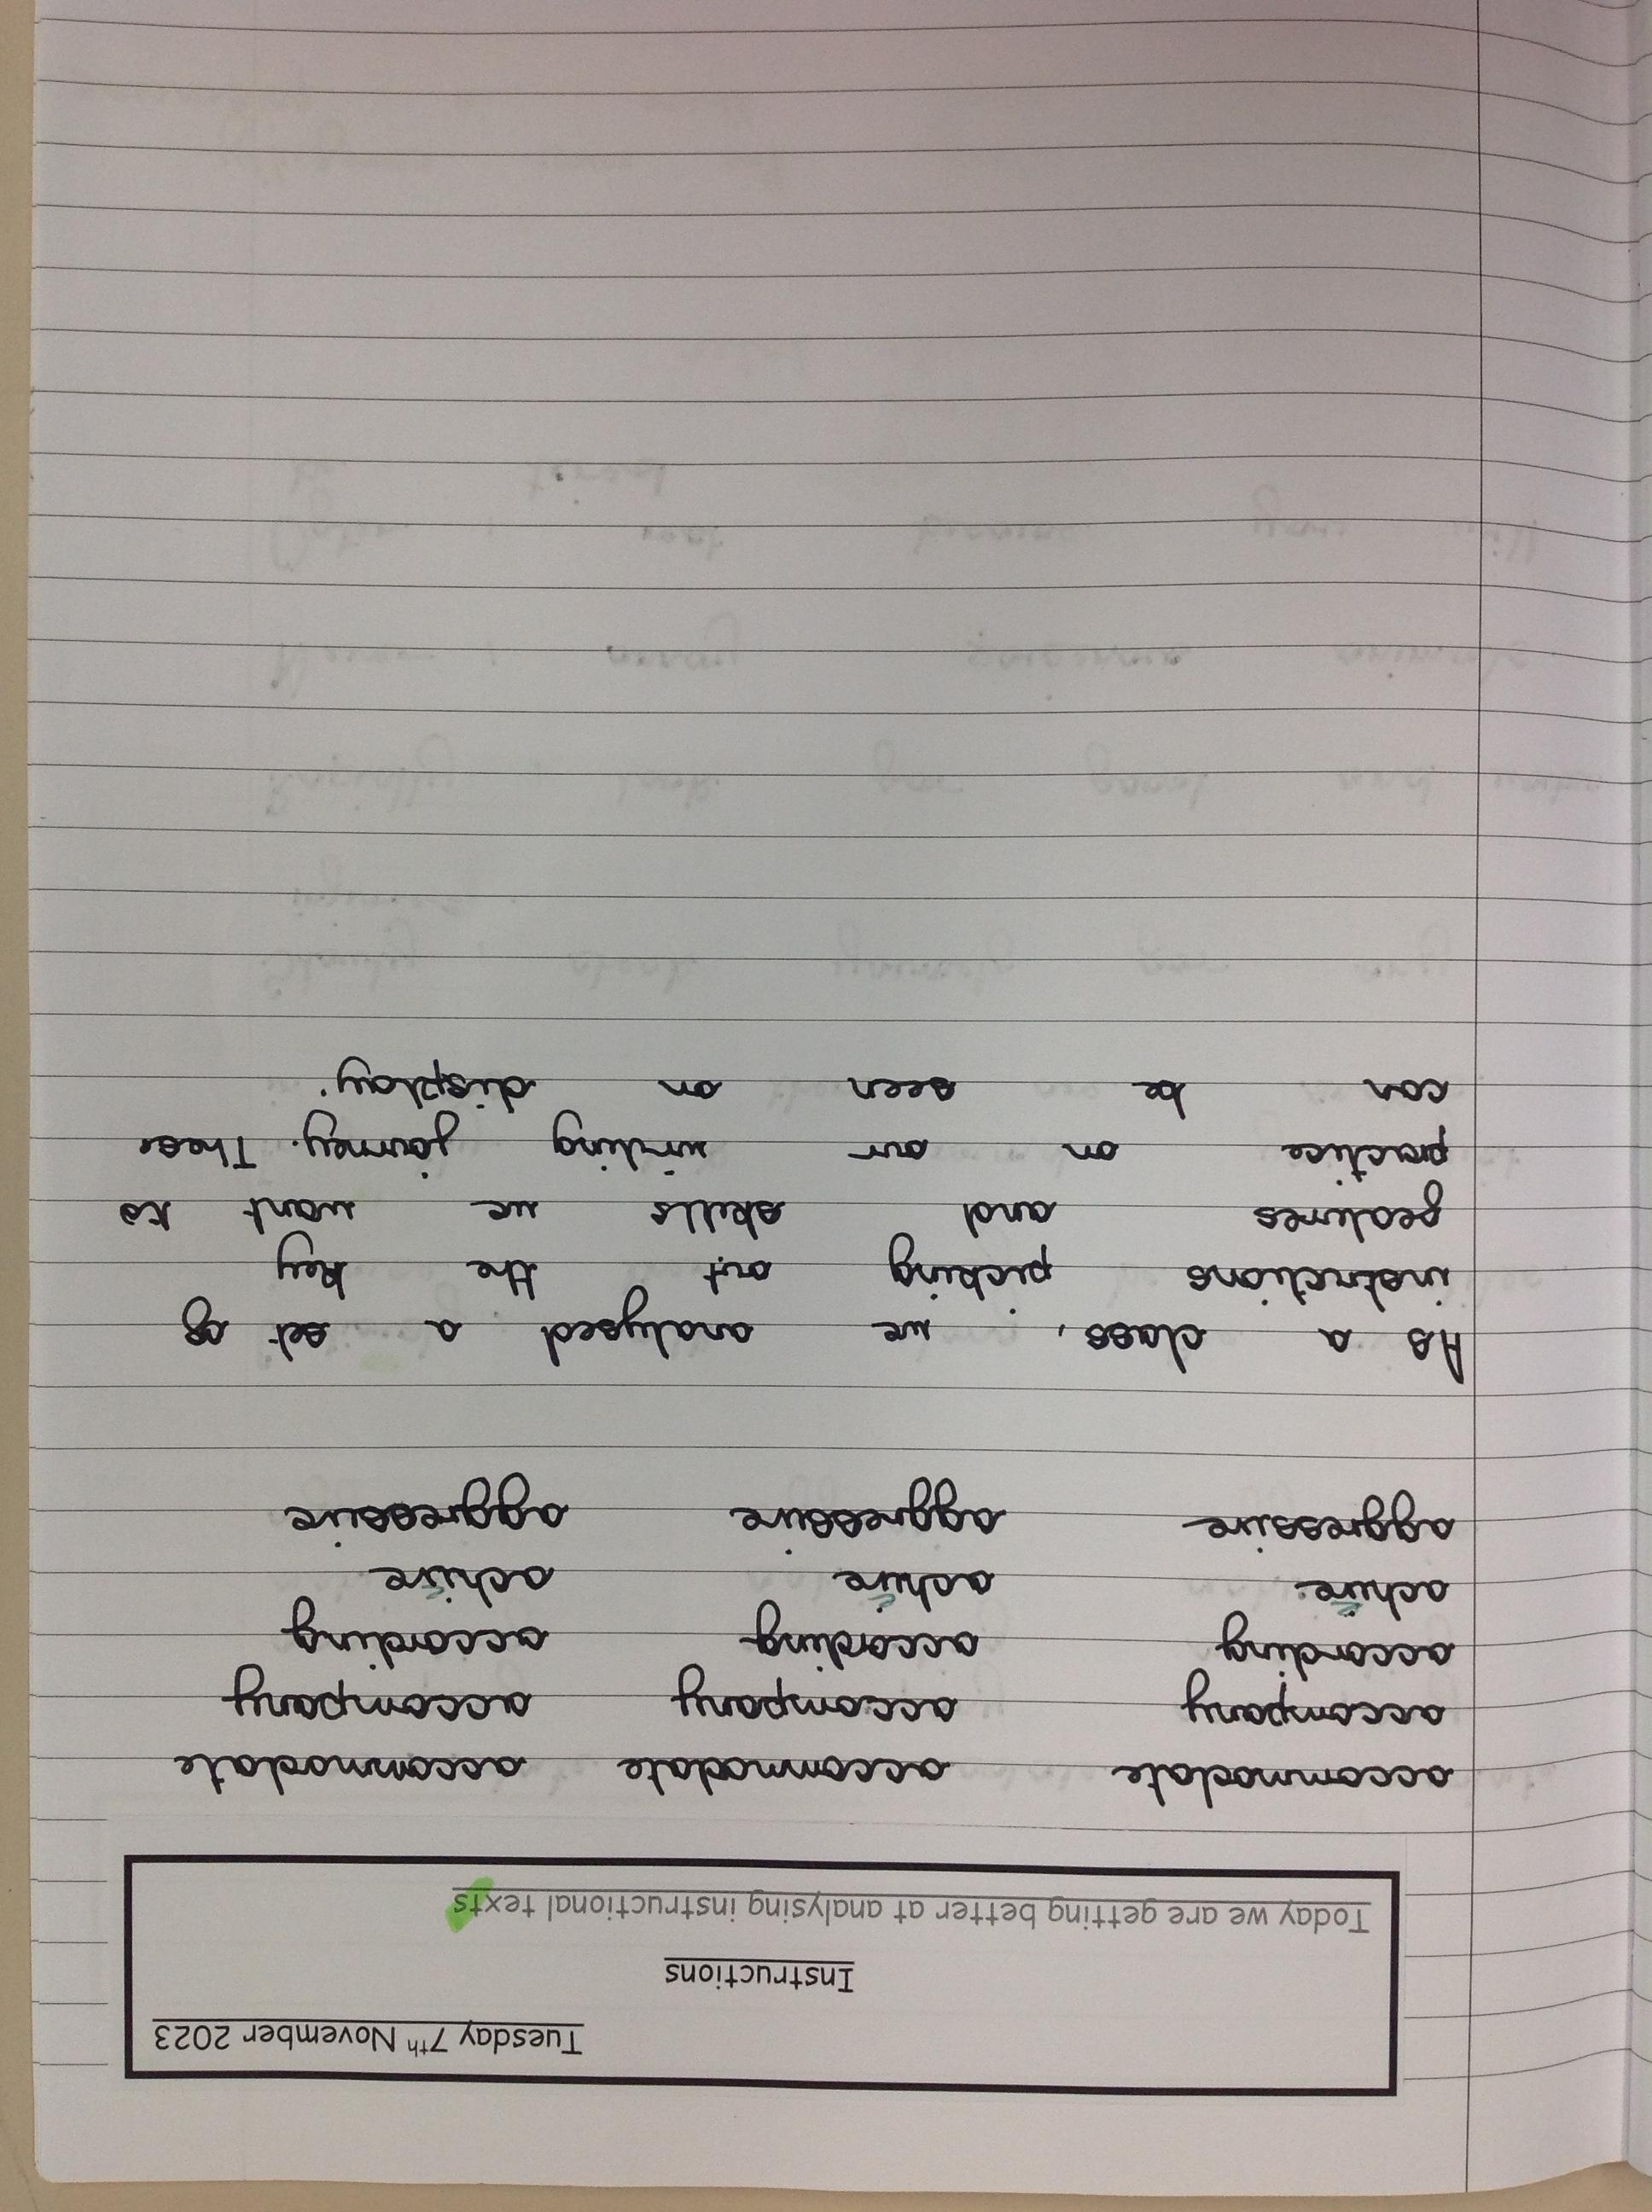 Tuesday 7th November 2023
Instructions
Today we are getting better at analysing instructional texts
accommodate accommodate accommodate
accompany accompany accompany
according according according
achieve achieve achieve
aggressive aggressive aggressive
As a class, we analysed a set of
instructions picking out the key
features and skills we want to
practice on our writing journey. These
can be seen on display.